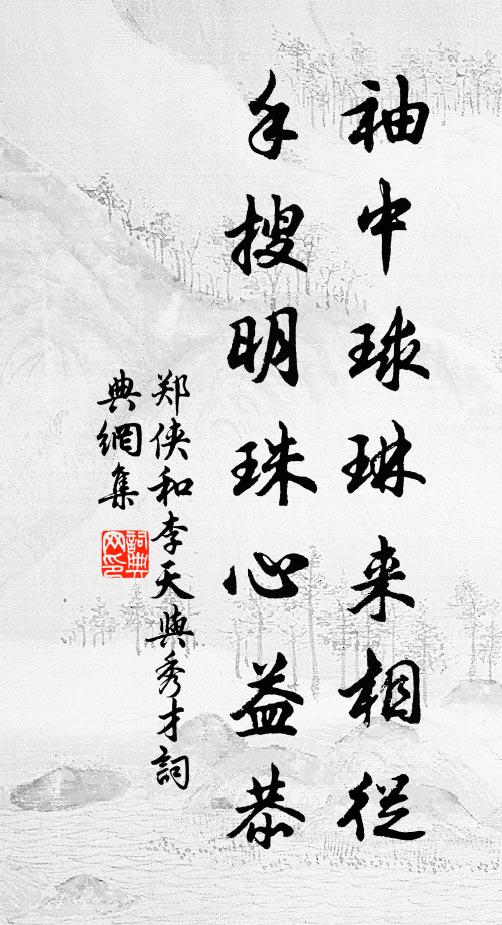 袖中球琳来相從
手搜明珠心益恭
郑侠和李天與秀才詞
典網集
詞典网印